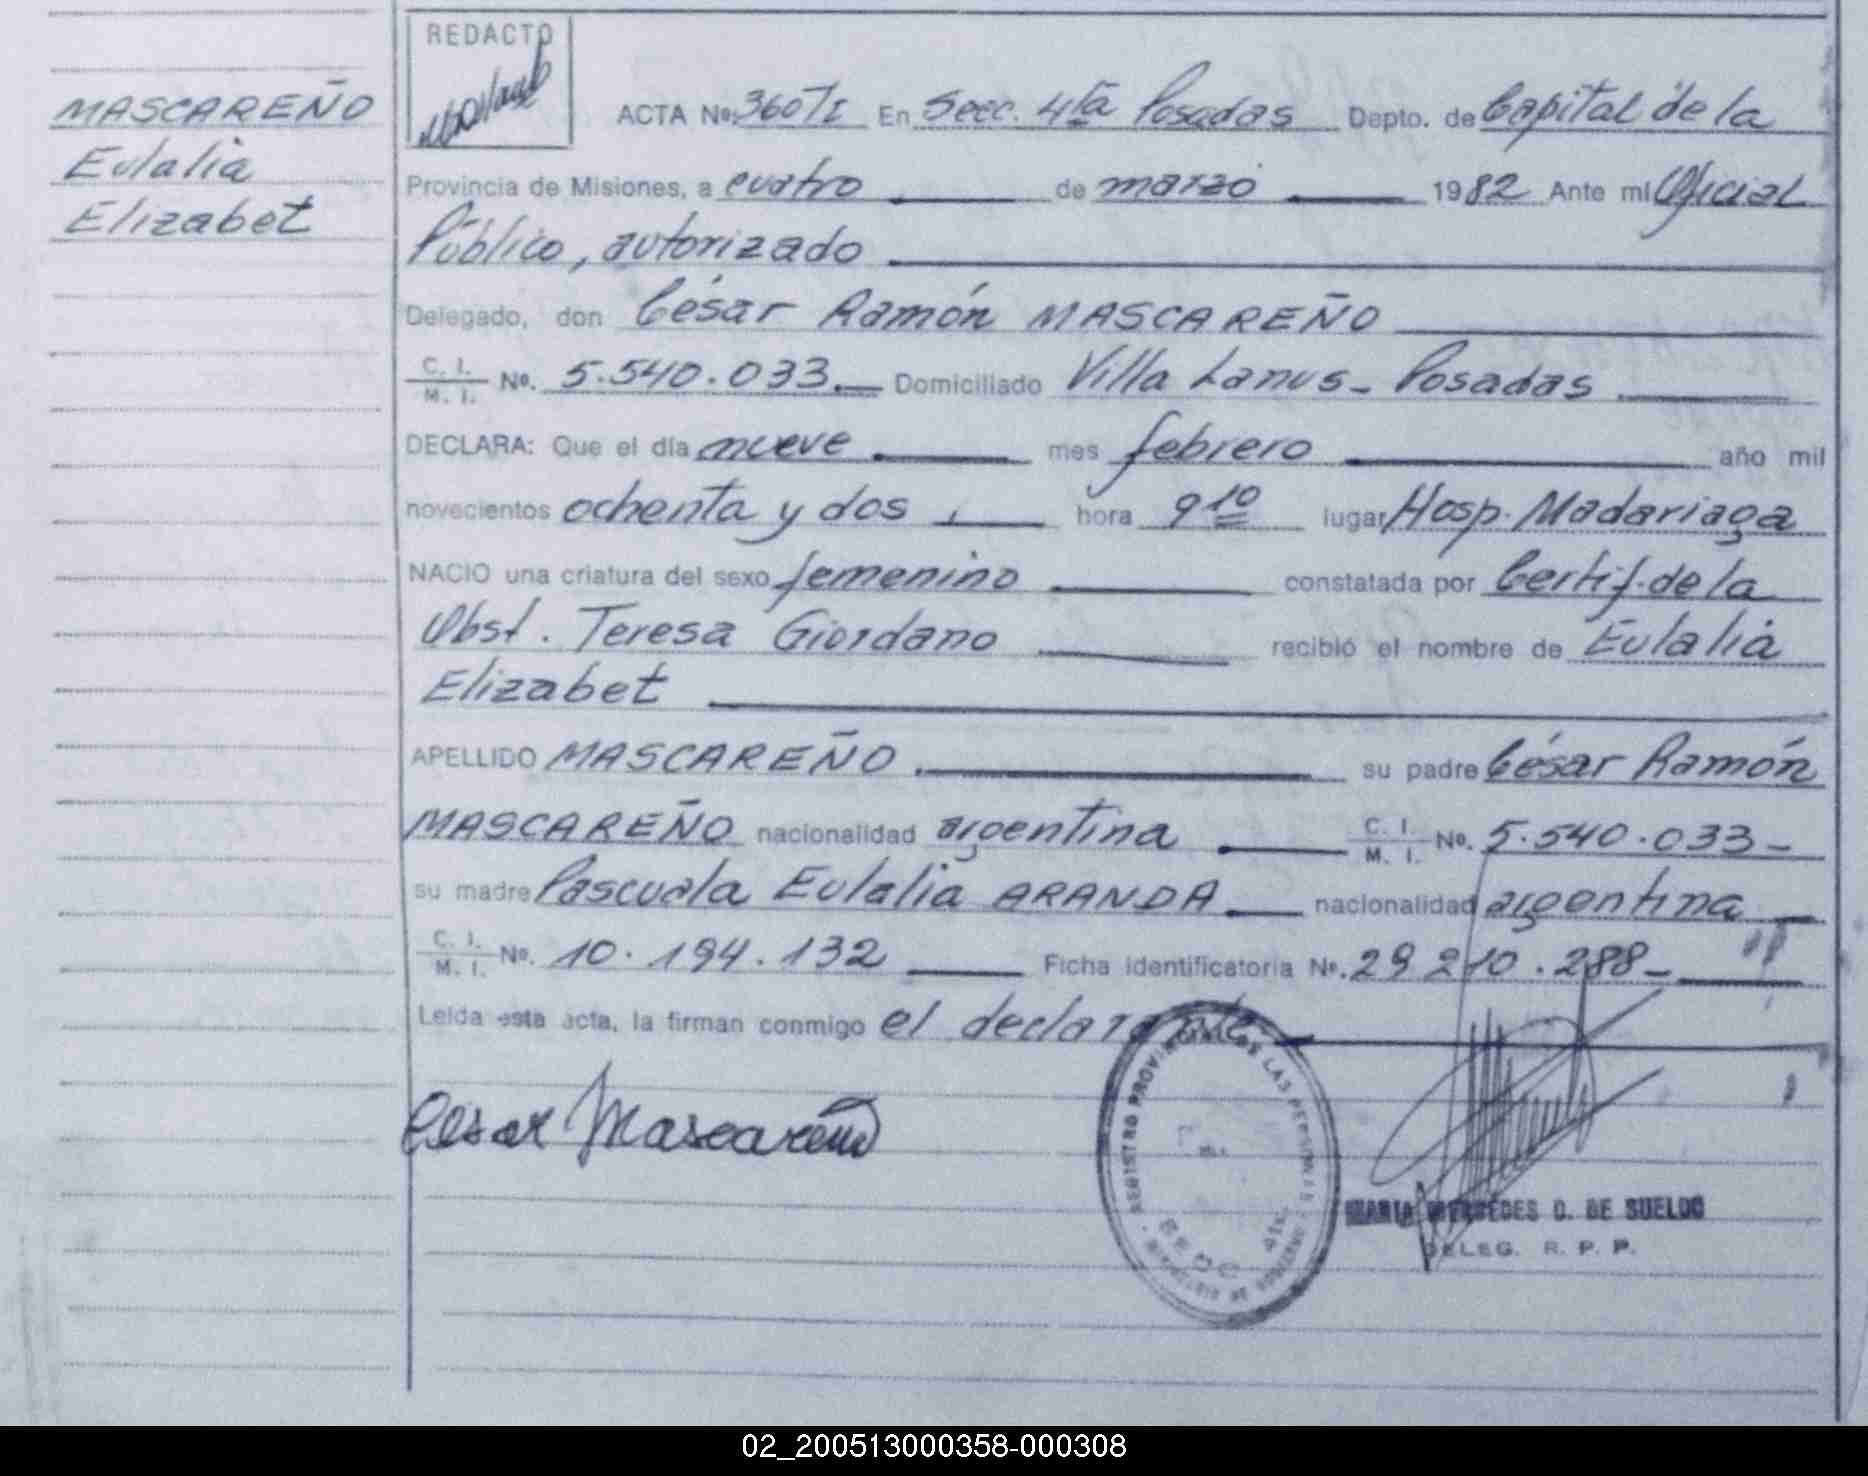 REDACTO
MASCAREÑO
Eulalia
Elizabet
ACTA No. 360/I En Secc. 4ta Posadas Depto. de Capital de la
Provincia de Misiones, a cuatro de marzo 1982 Ante mí Oficial
Público, autorizado
Delegado, don César Ramón MASCAREÑO
C. I. / M. I. No. 5.540.033. Domiciliado Villa Lanus - Posadas
DECLARA: Que el día nueve mes febrero año mil
novecientos ochenta y dos hora 9 10 lugar Hosp. Madariaga
NACIO una criatura del sexo femenino constatada por Certif. de la
Obst. Teresa Giordano recibió el nombre de Eulalia
Elizabet
APELLIDO MASCAREÑO su padre César Ramón
MASCAREÑO nacionalidad argentina C. I. / M. I. No. 5.540.033-
su madre Pascuala Eulalia ARANDA nacionalidad argentina
C. I. / M. I. No. 10.194.132 Ficha Identificatoria No. 29 210.288-
Leída esta acta, la firman conmigo el declarante
Cesar Mascareño
REGISTRO PROVINCIAL DE LAS PERSONAS
MINISTERIO DE GOBIERNO
MARIA MERCEDES O. DE SUELDO
DELEG. R. P. P.
02_200513000358-000308